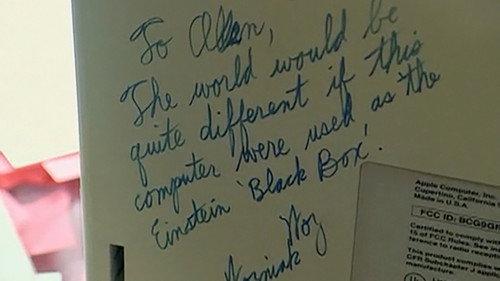 To Allan,
The world would be
quite different if this
computer were used as the
Einstein 'Black Box'.
Woz
Wozniak
Apple Computer, Inc.
Cupertino, California
Made in U.S.A.
FCC ID: BCG9GR
Certified to comply w
15 of FCC Rules. See
ference to radio recept
This product complies
CFR Subchapter J applic
manufacture.